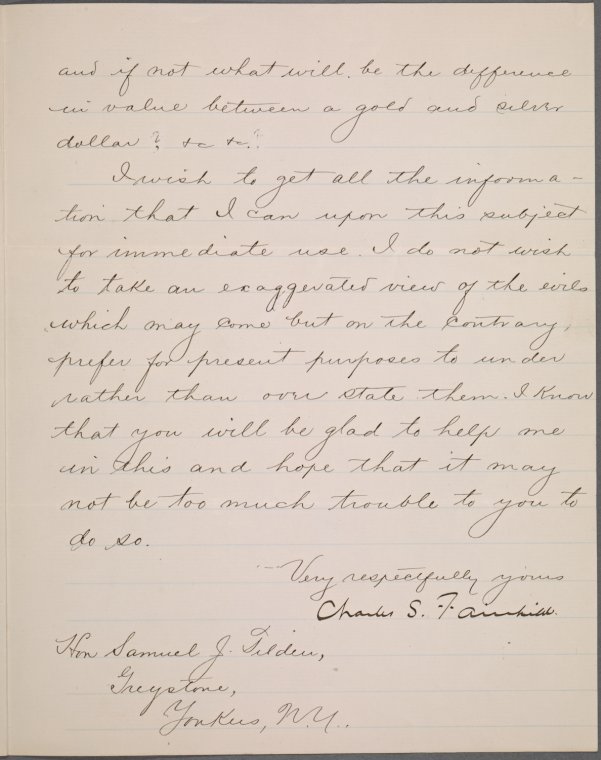 and if not what will be the difference
in value between a gold and silver
dollar? &c &c?
I wish to get all the informa-
tion that I can upon this subject
for immediate use. I do not wish
to take an exaggerated view of the evils
which may come but on the contrary,
prefer for present purposes to under
rather than over state them. I know
that you will be glad to help me
in this and hope that it may
not be too much trouble to you to
do so.
Very respectfully yours
Charles S. Fairchild.
Hon Samuel J. Tilden,
Greystone,
Yonkers, N.Y.